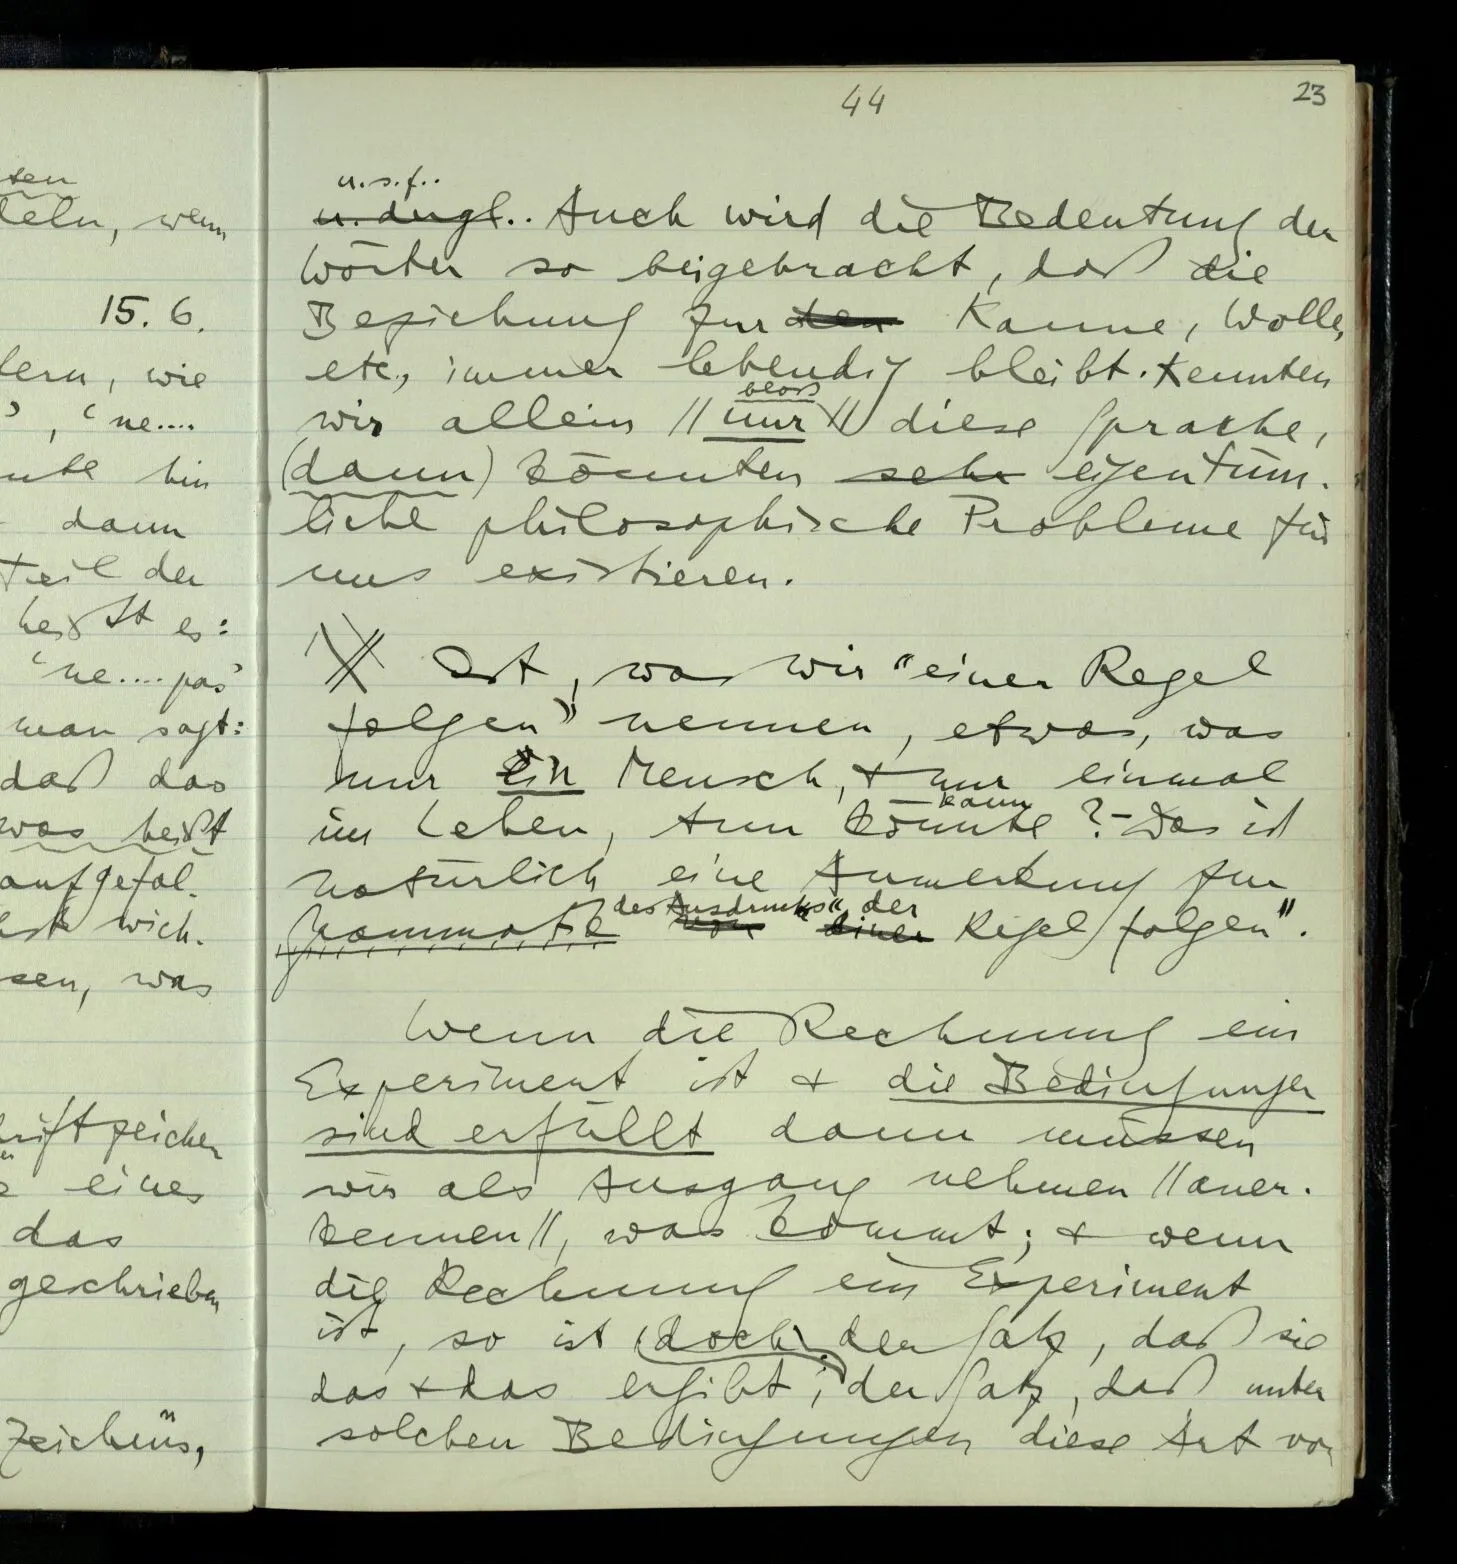 sen
teln, wenn
15. 6.
dern, wie
', 'ne....
hin
dann
teil der
heißt es:
'ne....pas'
man sagt:
daß das
was heißt
aufgefaß-
wich-
sen, was
riftzeichen
eines
das
geschrieben
Zeichens,
44
23
u.s.f..
u. dergl.. Auch wird die Bedeutung der
Wörter so beigebracht, daß die
Beziehung zur den Kanne, Wolle,
etc, immer lebendig bleibt. Kennten
bloß
wir allein // nur // diese Sprache,
(dann) könnten sehr eigentüm-
liche philosophische Probleme für
uns existieren.
Ist, was wir "einer Regel
folgen" nennen, etwas, was
nur ein Mensch, & nur einmal
kann
im Leben, tun könnte? – Das ist
natürlich eine Anmerkung zur
des Ausdrucks " der
Grammatik von "einer Regel folgen".
Wenn die Rechnung ein
Experiment ist & die Bedingungen
sind erfüllt dann müssen
wir als Ausgang nehmen // aner-
kennen //, was kommt; & wenn
die Rechnung ein Experiment
ist, so ist (doch) der Satz, daß sie
das & das ergibt, der Satz, daß unter
solchen Bedingungen diese Art von